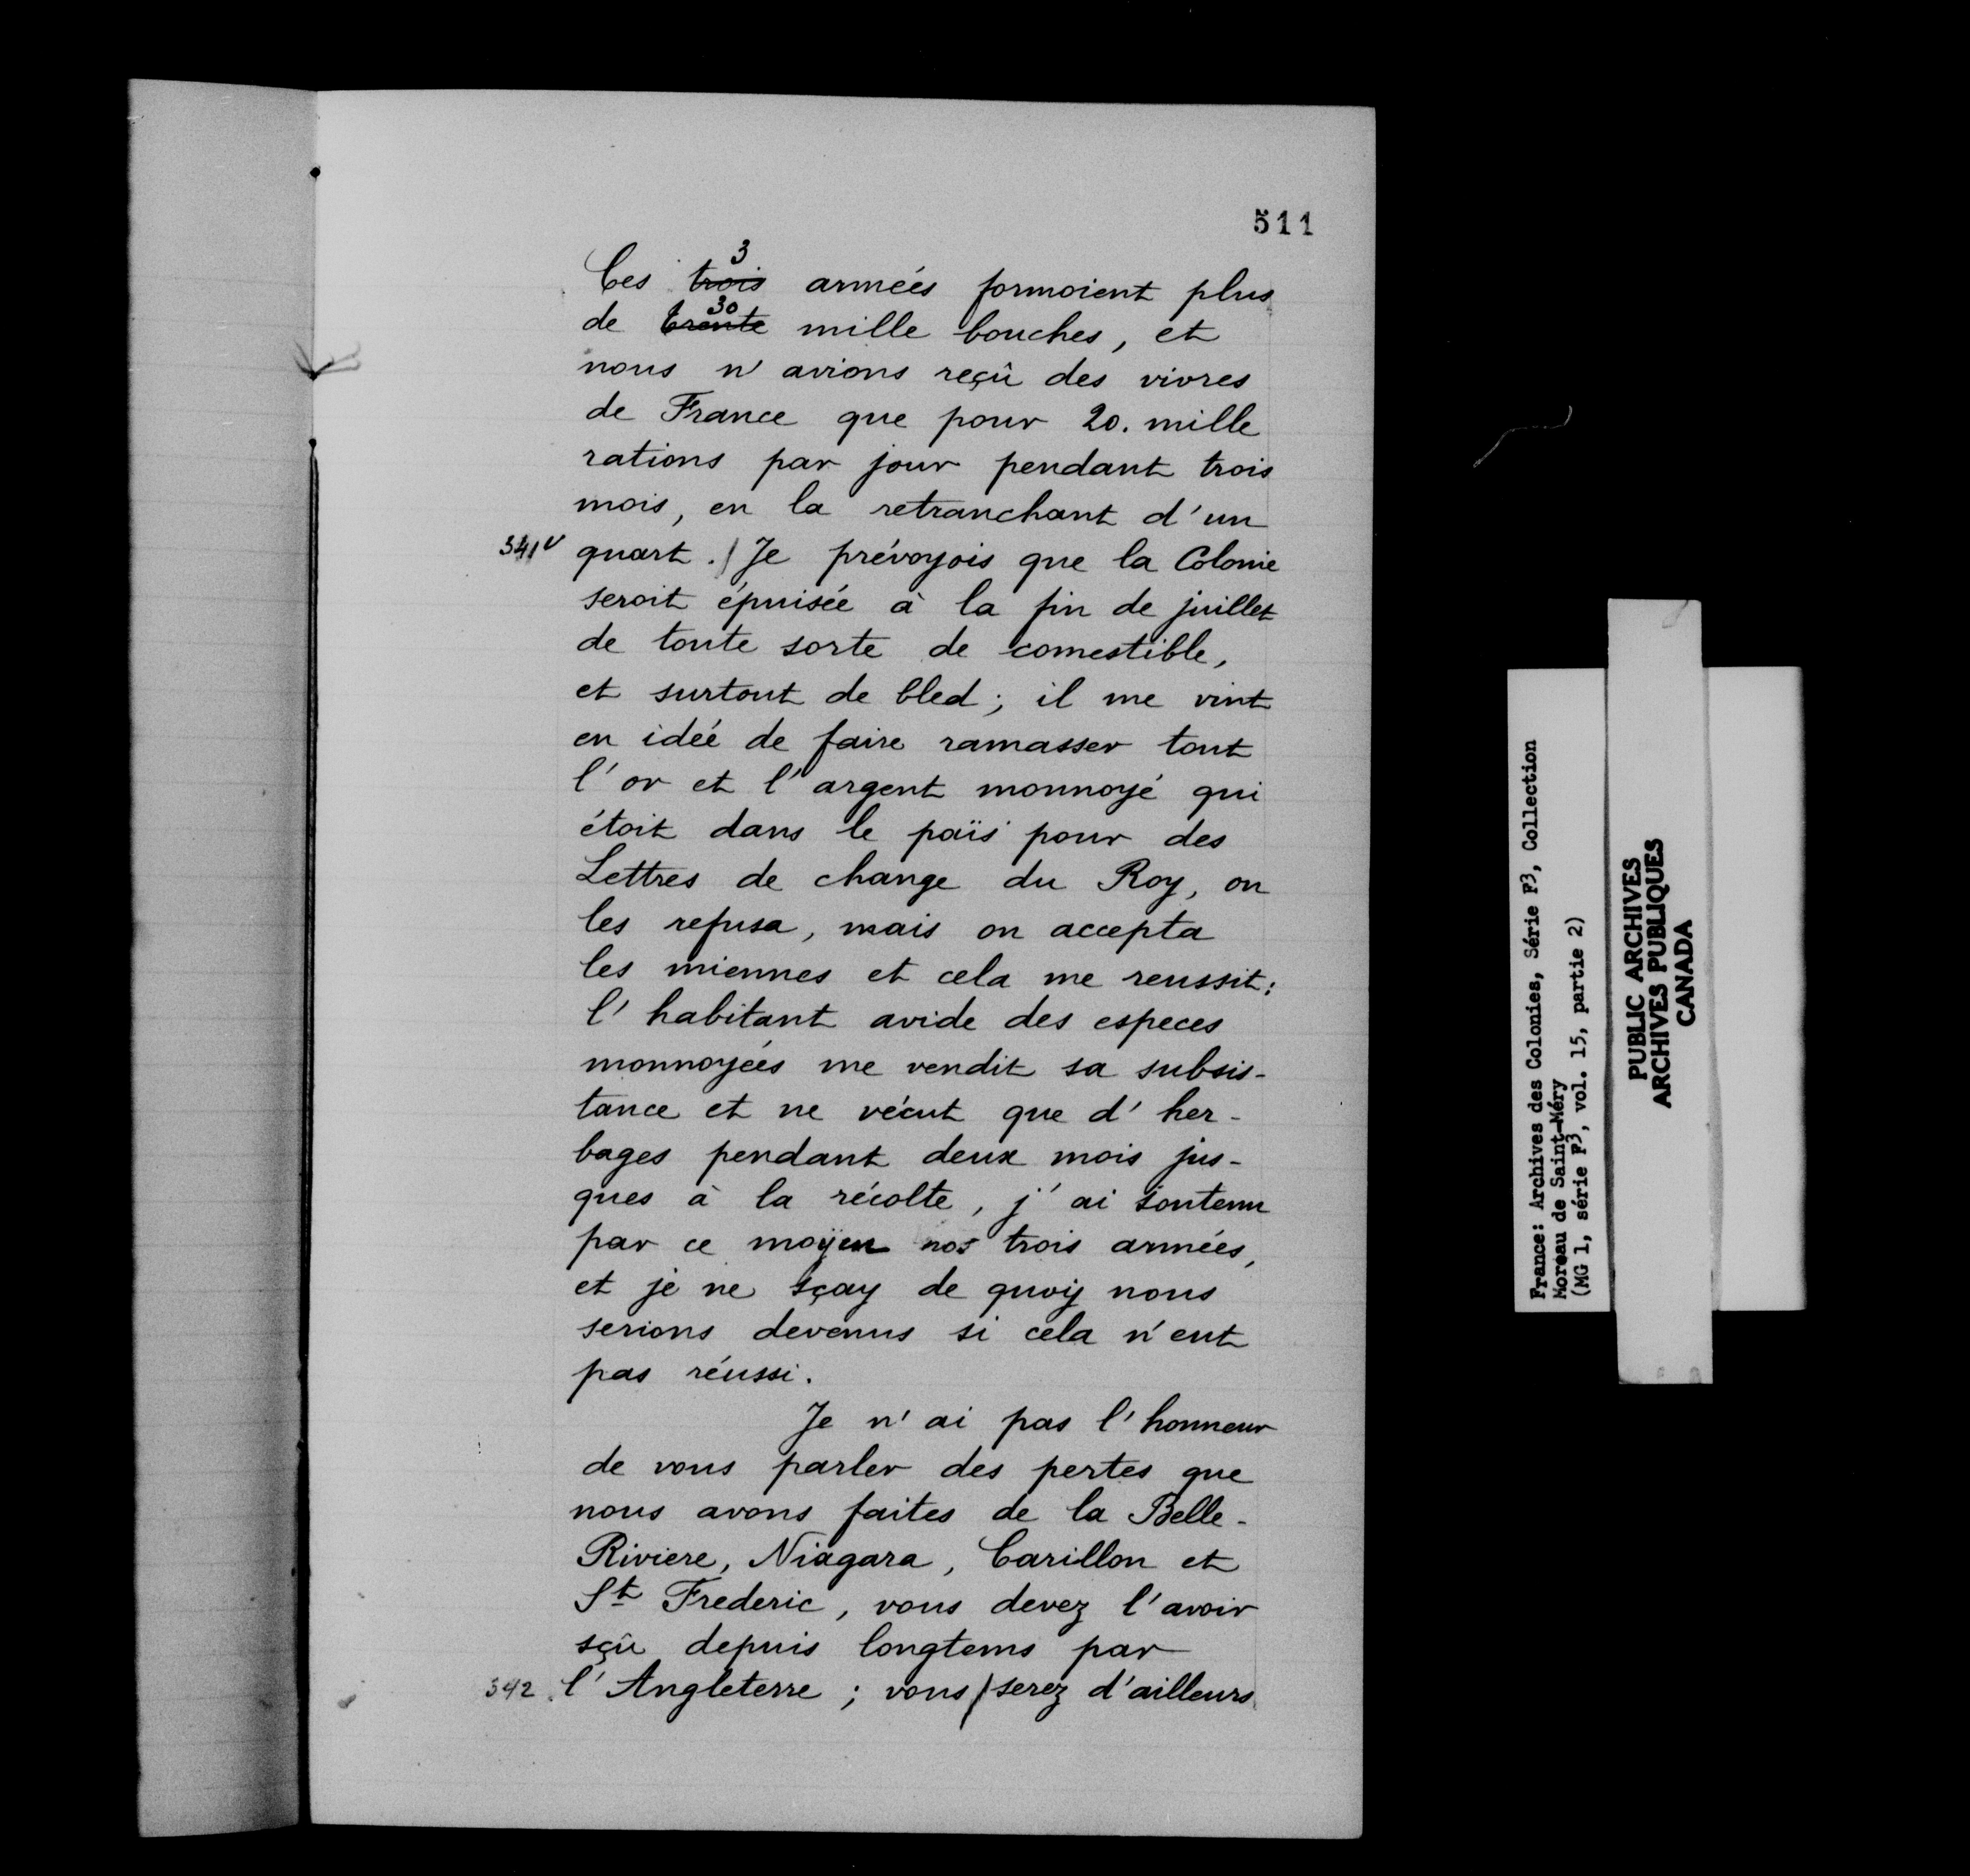 511
Ces trois 3 armées formoient plus
de trente 30 mille bouches, et
nous n'avions reçû des vivres
de France que pour 20. mille
rations par jour pendant trois
mois, en la retranchant d'un
341v quart. / Je prévoyois que la Colonie
seroit épuisée à la fin de juillet
de toute sorte de comestible,
et surtout de bled; il me vint
en idée de faire ramasser tout
l'or et l'argent monnoyé qui
étoit dans le païs pour des
Lettres de change du Roy, on
les refusa, mais on accepta
les miennes et cela me reussit:
l'habitant avide des especes
monnoyées me vendit sa subsis-
tance et ne vécut que d'her-
bages pendant deux mois jus-
ques à la récolte, j'ai soutenu
par ce moÿen nos trois armées,
et je ne sçay de quoy nous
serions devenus si cela n'eut
pas réussi.
Je n'ai pas l'honneur
de vous parler des pertes que
nous avons faites de la Belle-
Riviere, Niagara, Carillon et
St Frederic, vous devez l'avoir
sçû depuis longtems par
342 l'Angleterre; vous / serez d'ailleurs
France: Archives des Colonies, Série F3, Collection
Moreau de Saint-Méry
(MG 1, série F3, vol. 15, partie 2)
PUBLIC ARCHIVES
ARCHIVES PUBLIQUES
CANADA